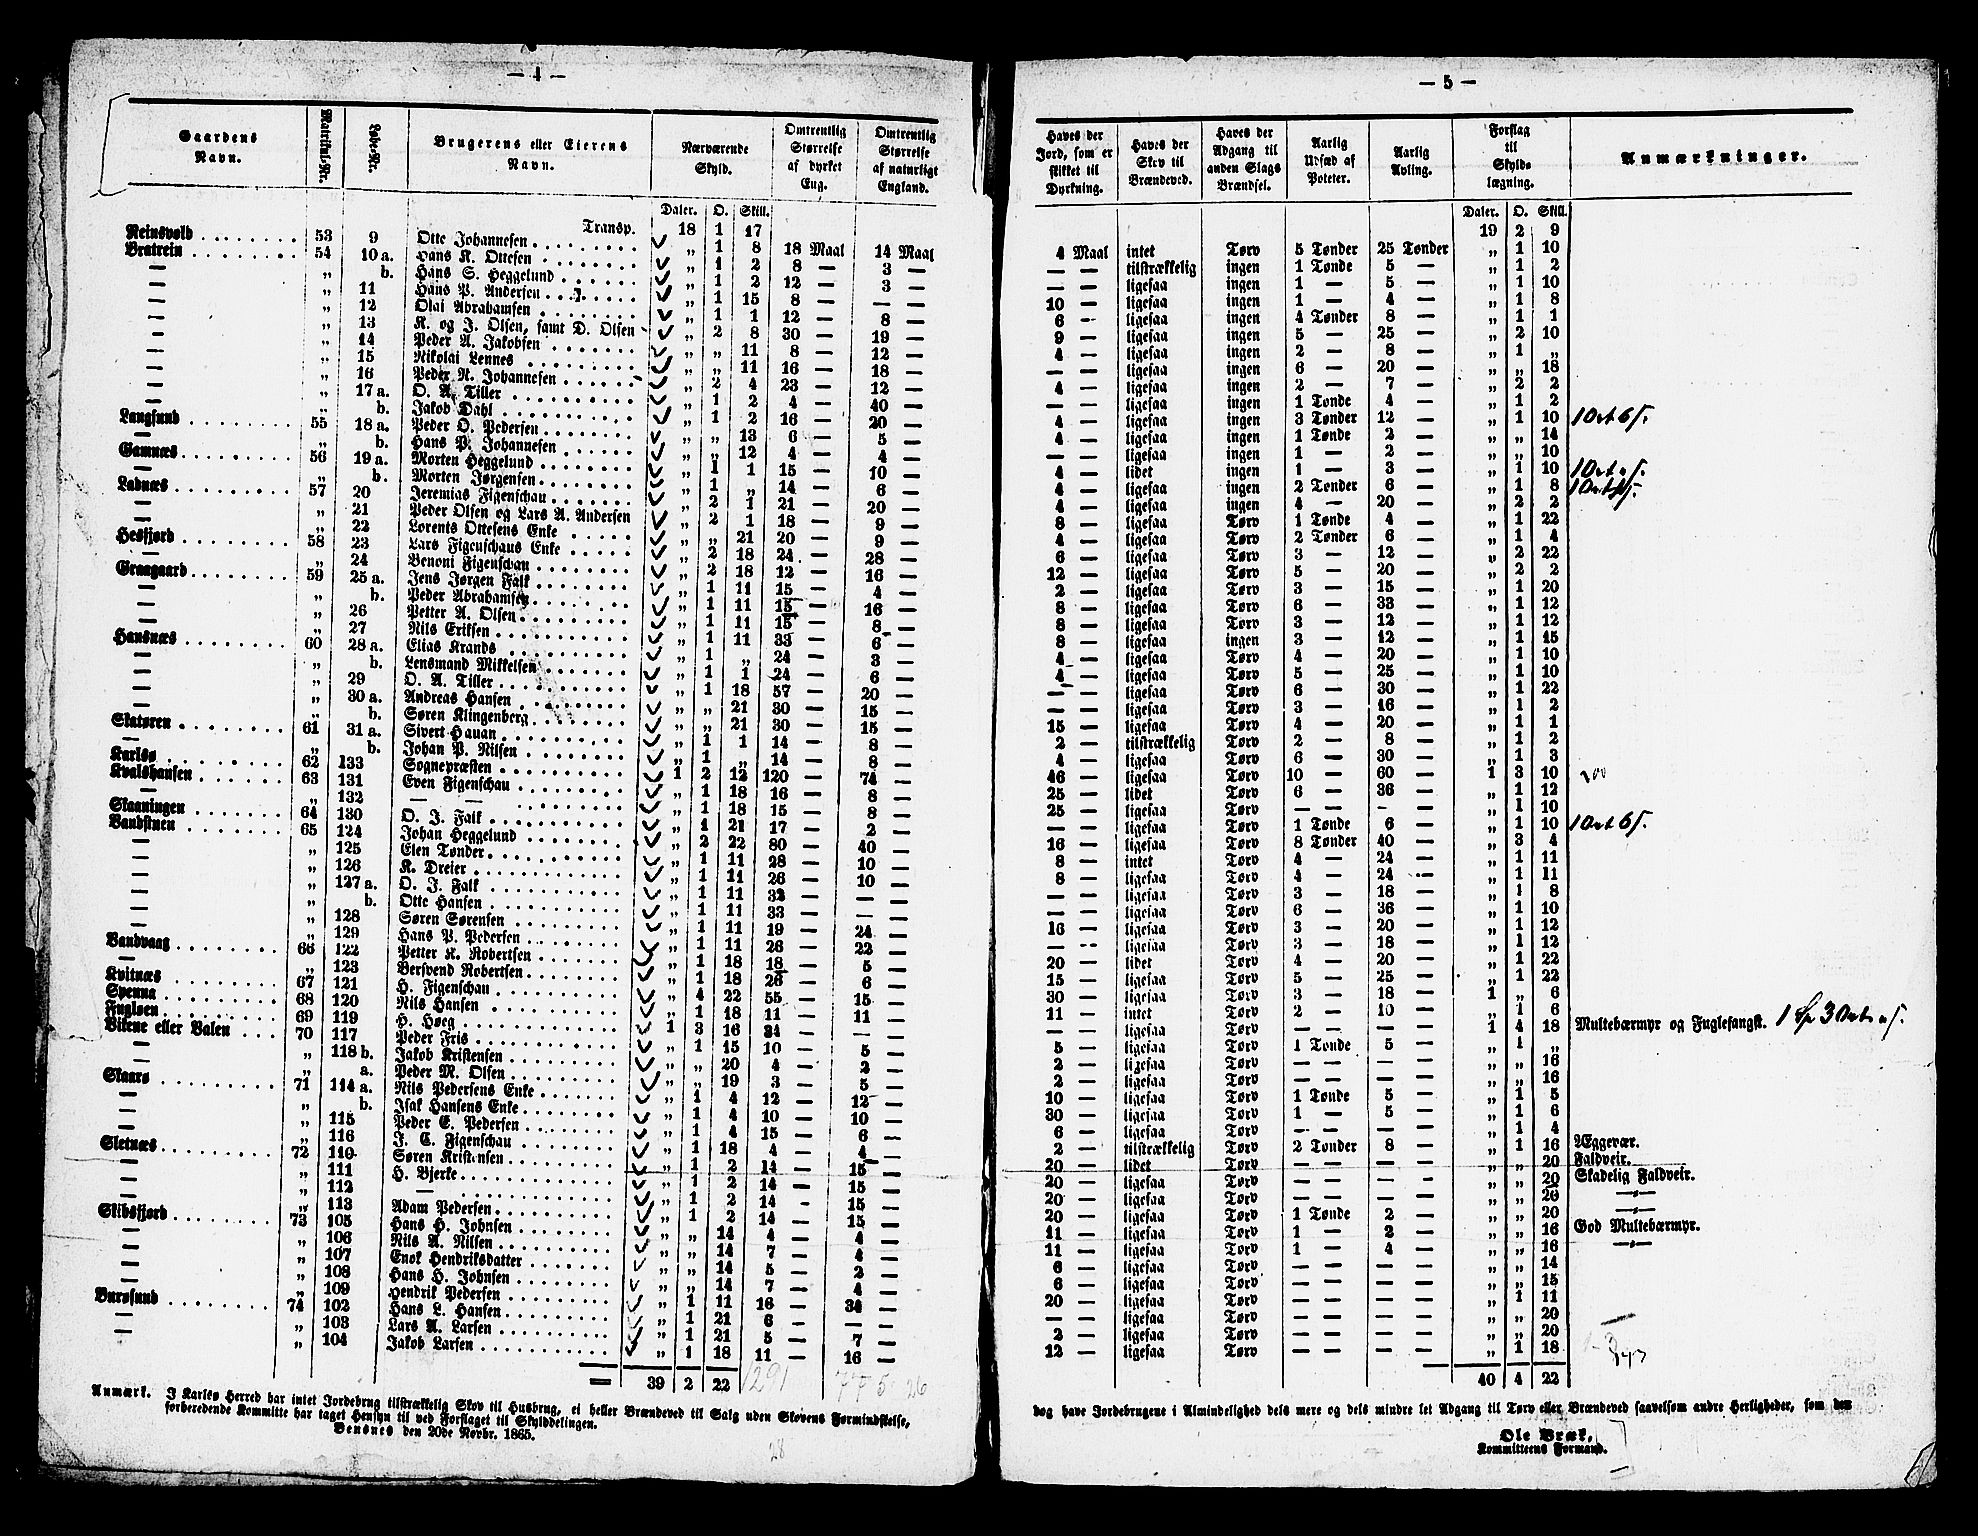 — 4 —
Gaardens Navn. Matrikul-Nr. Løbe-Nr. Brugerens eller Eierens Navn. Nærværende Skyld. Omtrentlig Størrelse af dyrket Eng. Omtrentlig Størrelse af naturligt England.
Daler. O. Skill.
Transp. 18 1 17
Reinsvold 53 9 Otte Johannesen „ 1 8 18 Maal 14 Maal
Bratrein 54 10 a. Hans K. Ottesen „ 1 2 8 — 3 —
— „ b. Hans S. Heggelund „ 1 2 12 — 3 —
— „ 11 Hans P. Andersen „ 1 15 8 — — —
— „ 12 Olai Abrahamsen „ 1 1 12 — 8 —
— „ 13 K. og J. Olsen, samt D. Olsen „ 2 8 30 — 19 —
— „ 14 Peder A. Jakobsen „ „ 11 8 — 12 —
— „ 15 Nikolai Lennes „ „ 11 16 — 18 —
— „ 16 Peder N. Johannesen „ 2 4 23 — 12 —
— „ 17 a. O. A. Tiller „ 1 2 4 — 40 —
— „ b. Jakob Dahl „ 1 2 16 — 20 —
Langsund 55 18 a. Peder O. Pedersen „ „ 13 6 — 5 —
— „ b. Hans P. Johannesen „ „ 12 4 — 4 —
Gamnæs 56 19 a. Morten Heggelund „ 1 1 15 — 10 —
— „ b. Morten Jørgensen „ 1 „ 14 — 6 —
Ladnæs 57 20 Jeremias Figenschau „ 2 1 21 — 20 —
— „ 21 Peder Olsen og Lars A. Andersen „ 2 1 18 — 9 —
— „ 22 Lorents Ottesens Enke „ „ 21 20 — 9 —
Hesfjord 58 23 Lars Figenschaus Enke „ 2 18 24 — 28 —
— „ 24 Benoni Figenschau „ 2 18 12 — 16 —
Graagaard 59 25 a. Jens Jørgen Falk „ 1 11 15 — 4 —
— „ b. Peder Abrahamsen „ 1 11 15 — 16 —
— „ 26 Petter A. Olsen „ 1 11 15 — 8 —
— „ 27 Nils Eriksen „ 1 11 33 — 6 —
Hansnæs 60 28 a. Elias Krands „ 1 „ 24 — 3 —
— „ b. Lensmand Mikkelsen „ 1 1 24 — 6 —
— „ 29 O. A. Tiller „ 1 18 57 — 20 —
— „ 30 a. Andreas Hansen „ „ 21 30 — 15 —
— „ b. Søren Klingenberg „ „ 21 30 — 15 —
Skatøren 61 31 a. Sivert Hauan „ 1 1 14 — 8 —
— „ b. Johan P. Nilsen „ 1 „ 14 — 8 —
Karlsø 62 133 Sognepræsten 1 2 12 120 — 74 —
Kvalshausen 63 131 Even Figenschau „ 1 18 16 — 8 —
— „ 132 — — „ 1 18 15 — 8 —
Skaaningen 64 130 O. J. Falk „ 1 21 17 — 2 —
Vandstuen 65 124 Johan Heggelund „ 2 22 80 — 40 —
— „ 125 Elen Tønder „ 1 11 28 — 10 —
— „ 126 K. Dreier „ 1 11 26 — 10 —
— „ 127 a. O. J. Falk „ 1 11 32 — — —
— „ b. Otte Hansen „ 1 11 33 — — —
— „ 128 Søren Sørensen „ 1 11 19 — 24 —
— „ 129 Hans P. Pedersen „ 1 11 26 — 22 —
Vandvaag 66 122 Petter K. Robertsen „ 1 18 18 — 5 —
— „ 123 Bersvend Robertsen „ 1 18 26 — 6 —
Kvitnæs 67 121 H. Figenschau „ 4 22 55 — 15 —
Spenna 68 120 Nils Hansen „ 1 18 11 — 11 —
Fugløen 69 119 H. Høeg 1 3 16 34 — — —
Vikene eller Valen 70 117 Peder Fris „ 1 15 10 — 5 —
— „ 118 b. Jakob Kristensen „ „ 20 4 — 2 —
— „ a. Peder M. Olsen „ „ 19 3 — 5 —
Skaarø 71 114 a. Nils Pedersens Enke „ 1 4 12 — 12 —
— „ b. Isak Hansens Enke „ 1 4 10 — 10 —
— „ 115 Peder E. Pedersen „ 1 4 15 — 6 —
— „ 116 J. C. Figenschau „ 1 18 4 — 4 —
Sletnæs 72 110 Søren Kristensen „ 1 2 14 — 15 —
— „ 111 H. Bjerke „ 1 2 14 — 15 —
— „ 112 — „ 1 2 14 - 15 —
— „ 113 Adam Pedersen „ 1 2 14 — 15 —
Skibsfjord 73 105 Hans H. Johnsen „ „ 14 4 — 4 —
— „ 106 Nils A. Nilsen „ „ 14 7 — 4 —
— „ 107 Enok Hendriksdatter „ „ 14 5 — 2 —
— „ 108 Hans H. Johnsen „ „ 14 7 — 4 —
— „ 109 Hendrik Pedersen „ 1 11 16 — 34 —
Burøsund 74 102 Hans L. Hansen „ 1 21 6 — — —
— „ 103 Lars A. Larsen „ 1 21 5 — 7 —
— „ 104 Jakob Larsen „ 1 18 11 — 16 —
39 2 22 1291 775 26
Anmærk. I Karlsø Herred har intet Jordebrug tilstrækkelig Skov til Husbrug, ei heller Brændeved til Salg uden Skovens Formindskelse,
forberedende Kommitte har taget Hensyn til ved Forslaget til Skylddelingen.
Bensnes den 20de Novbr. 1865.
28
— 5 —
Haves der Jord, som er skikket til Dyrkning. Haves der Skov til Brændeved. Haves der Adgang til anden Slags Brændsel. Aarlig Udsæd af Poteter. Aarlig Avling. Forslag til Skyldlægning. Anmærkninger.
Daler. O. Skill.
19 2 9
4 Maal intet Tørv 5 Tønder 25 Tønder „ 1 10
— — tilstrækkelig ingen 1 Tønde 5 — „ 1 2
— — ligesaa ingen 1 — 5 — „ 1 10
10 — ligesaa ingen 1 — 4 — „ 1 8
6 — ligesaa ingen 4 Tønder 8 — „ 1 1
9 — ligesaa ingen 5 — 25 — „ 2 10
4 — ligesaa ingen 2 — 8 — „ 1 „
— — ligesaa ingen 6 — 20 — „ „ 18
4 — ligesaa ingen 2 — 7 — „ 2 2
— — ligesaa ingen 1 Tønde 4 — „ 1 2
4 — ligesaa ingen 3 Tønder 12 — „ 1 10 1 Ort 6 ſ.
4 — ligesaa ingen 1 Tønde 2 — „ „ 14
— — ligesaa ingen 1 — 2 — „ „ 10
4 — lidet ingen 1 — 3 — „ 1 10 1 Ort „ ſ.
4 — ligesaa ingen 2 Tønder 6 — „ 1 8 1 Ort
4 — ligesaa ingen 4 — 20 — „ 2 2
8 — ligesaa Tørv 1 Tønde 4 — „ 1 22
4 — ligesaa Tørv 2 Tønder 6 — „ 1 4
6 — ligesaa Tørv 3 — 12 — „ 2 22
12 — ligesaa Tørv 5 — 20 — „ 2 2
2 — ligesaa Tørv 3 — 15 — „ 1 20
8 — ligesaa Tørv 6 — 33 — „ 1 12
8 — ligesaa Tørv 3 — 12 — „ 1 12
8 — ligesaa ingen 3 — 12 — „ 1 15
4 — ligesaa Tørv 4 — 20 — „ 1 10
4 — ligesaa Tørv 5 — 25 — „ 1 10
— — ligesaa Tørv 6 — 30 — „ 1 22
— — ligesaa Tørv 3 — 16 — „ 1 2
15 — ligesaa Tørv 4 — 20 — „ 1 1
2 — tilstrækkelig Tørv 2 — 8 — „ 1 2
4 — ligesaa Tørv 6 — 30 — „ 1 3
46 — ligesaa Tørv 10 — 60 — 1 3 10
25 — lidet Tørv 6 — 36 — „ 1 12
25 — ligesaa Tørv — — - — „ 1 10
— — ligesaa Tørv 1 Tønde 6 — „ 1 10 1 Ort 6 ſ.
16 — ligesaa Tørv 8 Tønder 40 — „ 3 4
8 — intet Tørv 4 — 24 — „ 1 11
8 — ligesaa Tørv 4 — 24 — „ 1 11
— — ligesaa Tørv 3 — 18 — „ 1 8
— — ligesaa Tørv 6 — 36 — „ 1 10
16 — ligesaa Tørv 3 — 20 — „ 1 12
— — ligesaa Tørv 3 — 18 — „ 1 12
20 — lidet Tørv 4 — 20 — „ 1 22
15 — ligesaa Tørv 5 — 25 — „ 1 22
30 — ligesaa Tørv 3 — 18 — 1 „ 6
11 — intet Tørv 2 — 10 — „ 1 6
— — ligesaa Tørv — — — — 1 4 18 Multebærmyr og Fuglefangst. 1 Sp 3 Ort „ ſ.
5 — ligesaa Tørv 1 Tønde 5 — „ 1 „
2 — ligesaa Tørv — — — — „ „ 16
2 — ligesaa Tørv — — — — „ „ 16
10 — ligesaa Tørv 1 Tønde 5 — „ 1 5
30 — ligesaa Tørv 1 — 5 — „ 1 6
6 — ligesaa Tørv — — — — „ 1 4
2 — tilstrækkelig Tørv 2 Tønder 8 — „ 1 16 Æggevær.
20 — lidet Tørv — — — — „ „ 20 Faldveir.
20 — ligesaa Tørv — — — — „ „ 20 Skadelig Faldveir.
20 — ligesaa Tørv — — — — „ „ 20 —„—
20 — ligesaa Tørv 1 Tønde 2 — „ „ 20
11 — ligesaa Tørv 1 — 2 — „ „ 16 God Multebærmyr.
11 — ligesaa Tørv 1 — 4 — „ „ 16 —„—
6 — ligesaa Tørv — — — — „ „ 14
6 — ligesaa Tørv — — — — „ „ 15
20 — ligesaa Tørv — — — — „ 1 11
— — ligesaa Tørv — — — — „ „ 20
2 — ligesaa Tørv — — — — „ „ 20
12 — ligesaa Tørv — — — — „ 1 18
40 4 22
dog have Jordebrugene i Almindelighed dels mere og dels mindre let Adgang til Tørv eller Brændeved saavelsom andre Herligheder, som den
Ole Bræk,
Kommitteens Formand.